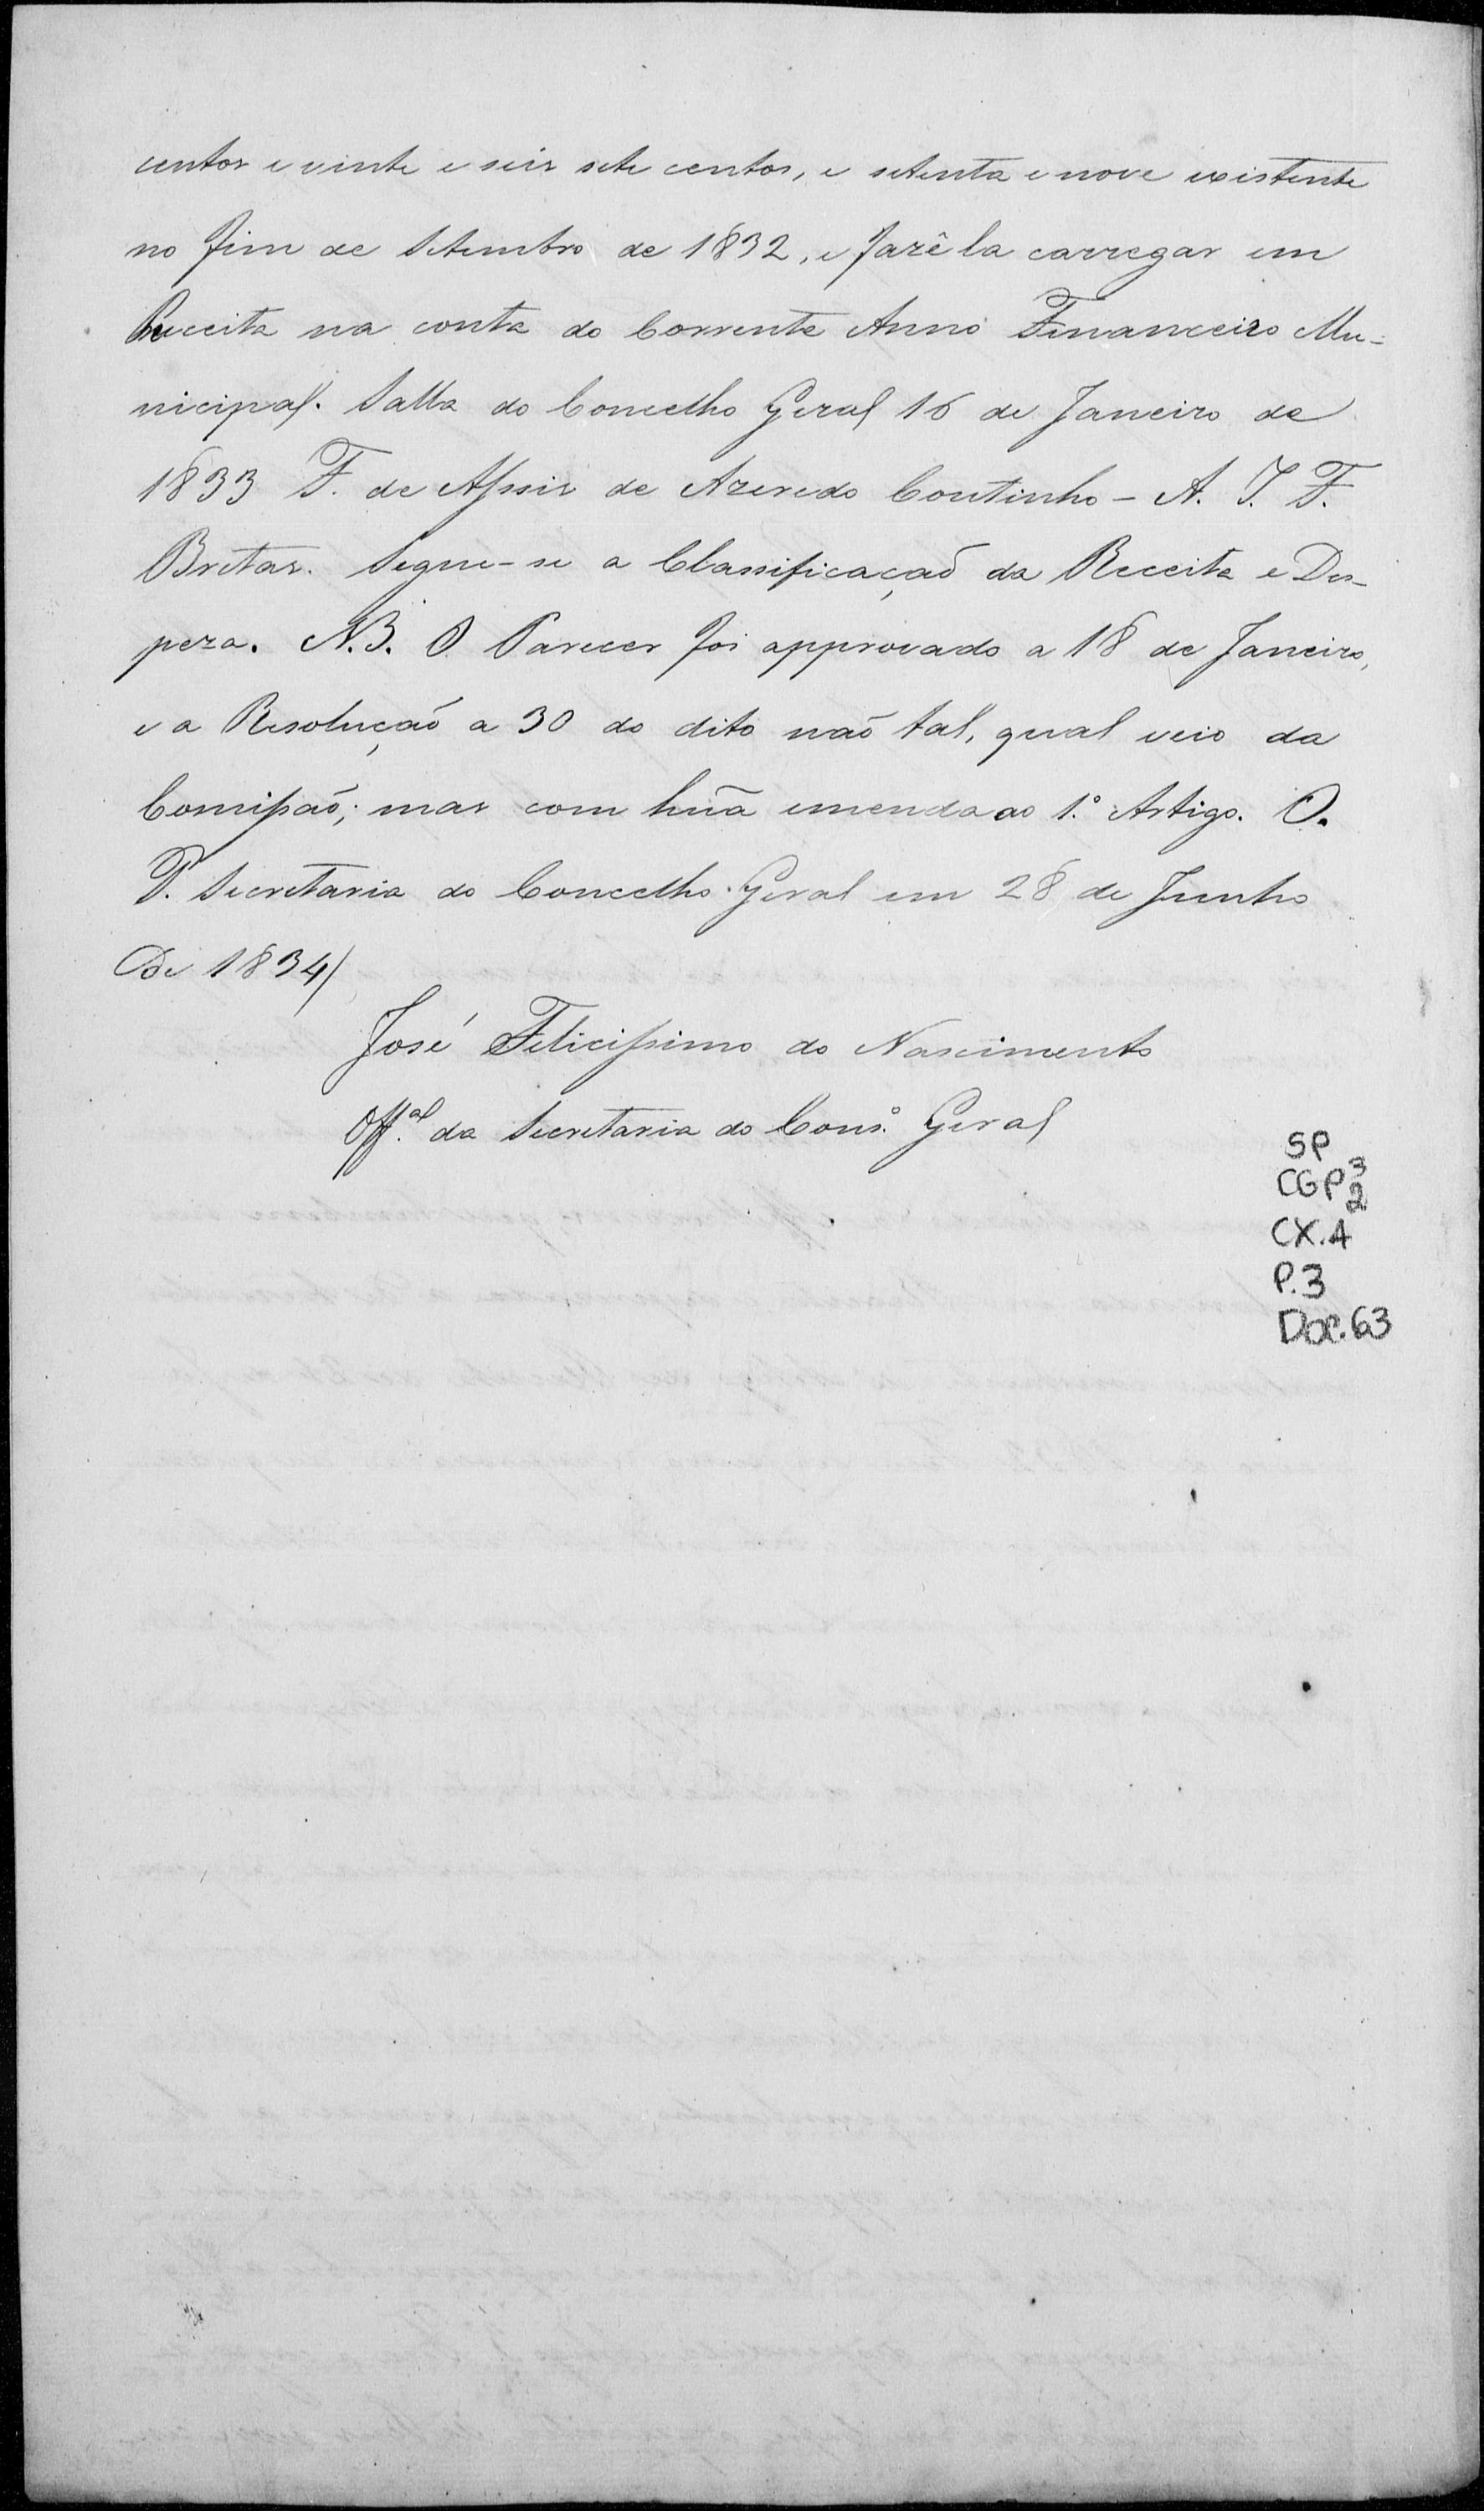 centos e vinte e seis sete centos, e setenta e nove existente
no fim de Setembro de 1832, e fazêla carregar em
Receita na conta do Corrente Anno Financeiro Mu-
nicipal. Salla do Concelho Geral 16 de Janeiro de
1833 F. de Assis de Azeredo Coutinho - A. J. F.
Bretas. Segue-se a Classificaçaõ da Receita e Des-
peza. N.B. O Parecer foi approvado a 18 de Janeiro,
e a Resoluçaõ a 30 do dito naõ tal, qual veio da
Comissaõ; mas com huã emenda ao 1.º Artigo. O.
P. Secretaria do Concelho Geral em 28 de Junho
De 1834/
José Felicissimo do Nascimento
Off.al da Secretaria do Cons.º Geral
SP
CGP 3
2
CX.4
P.3
Doc.63